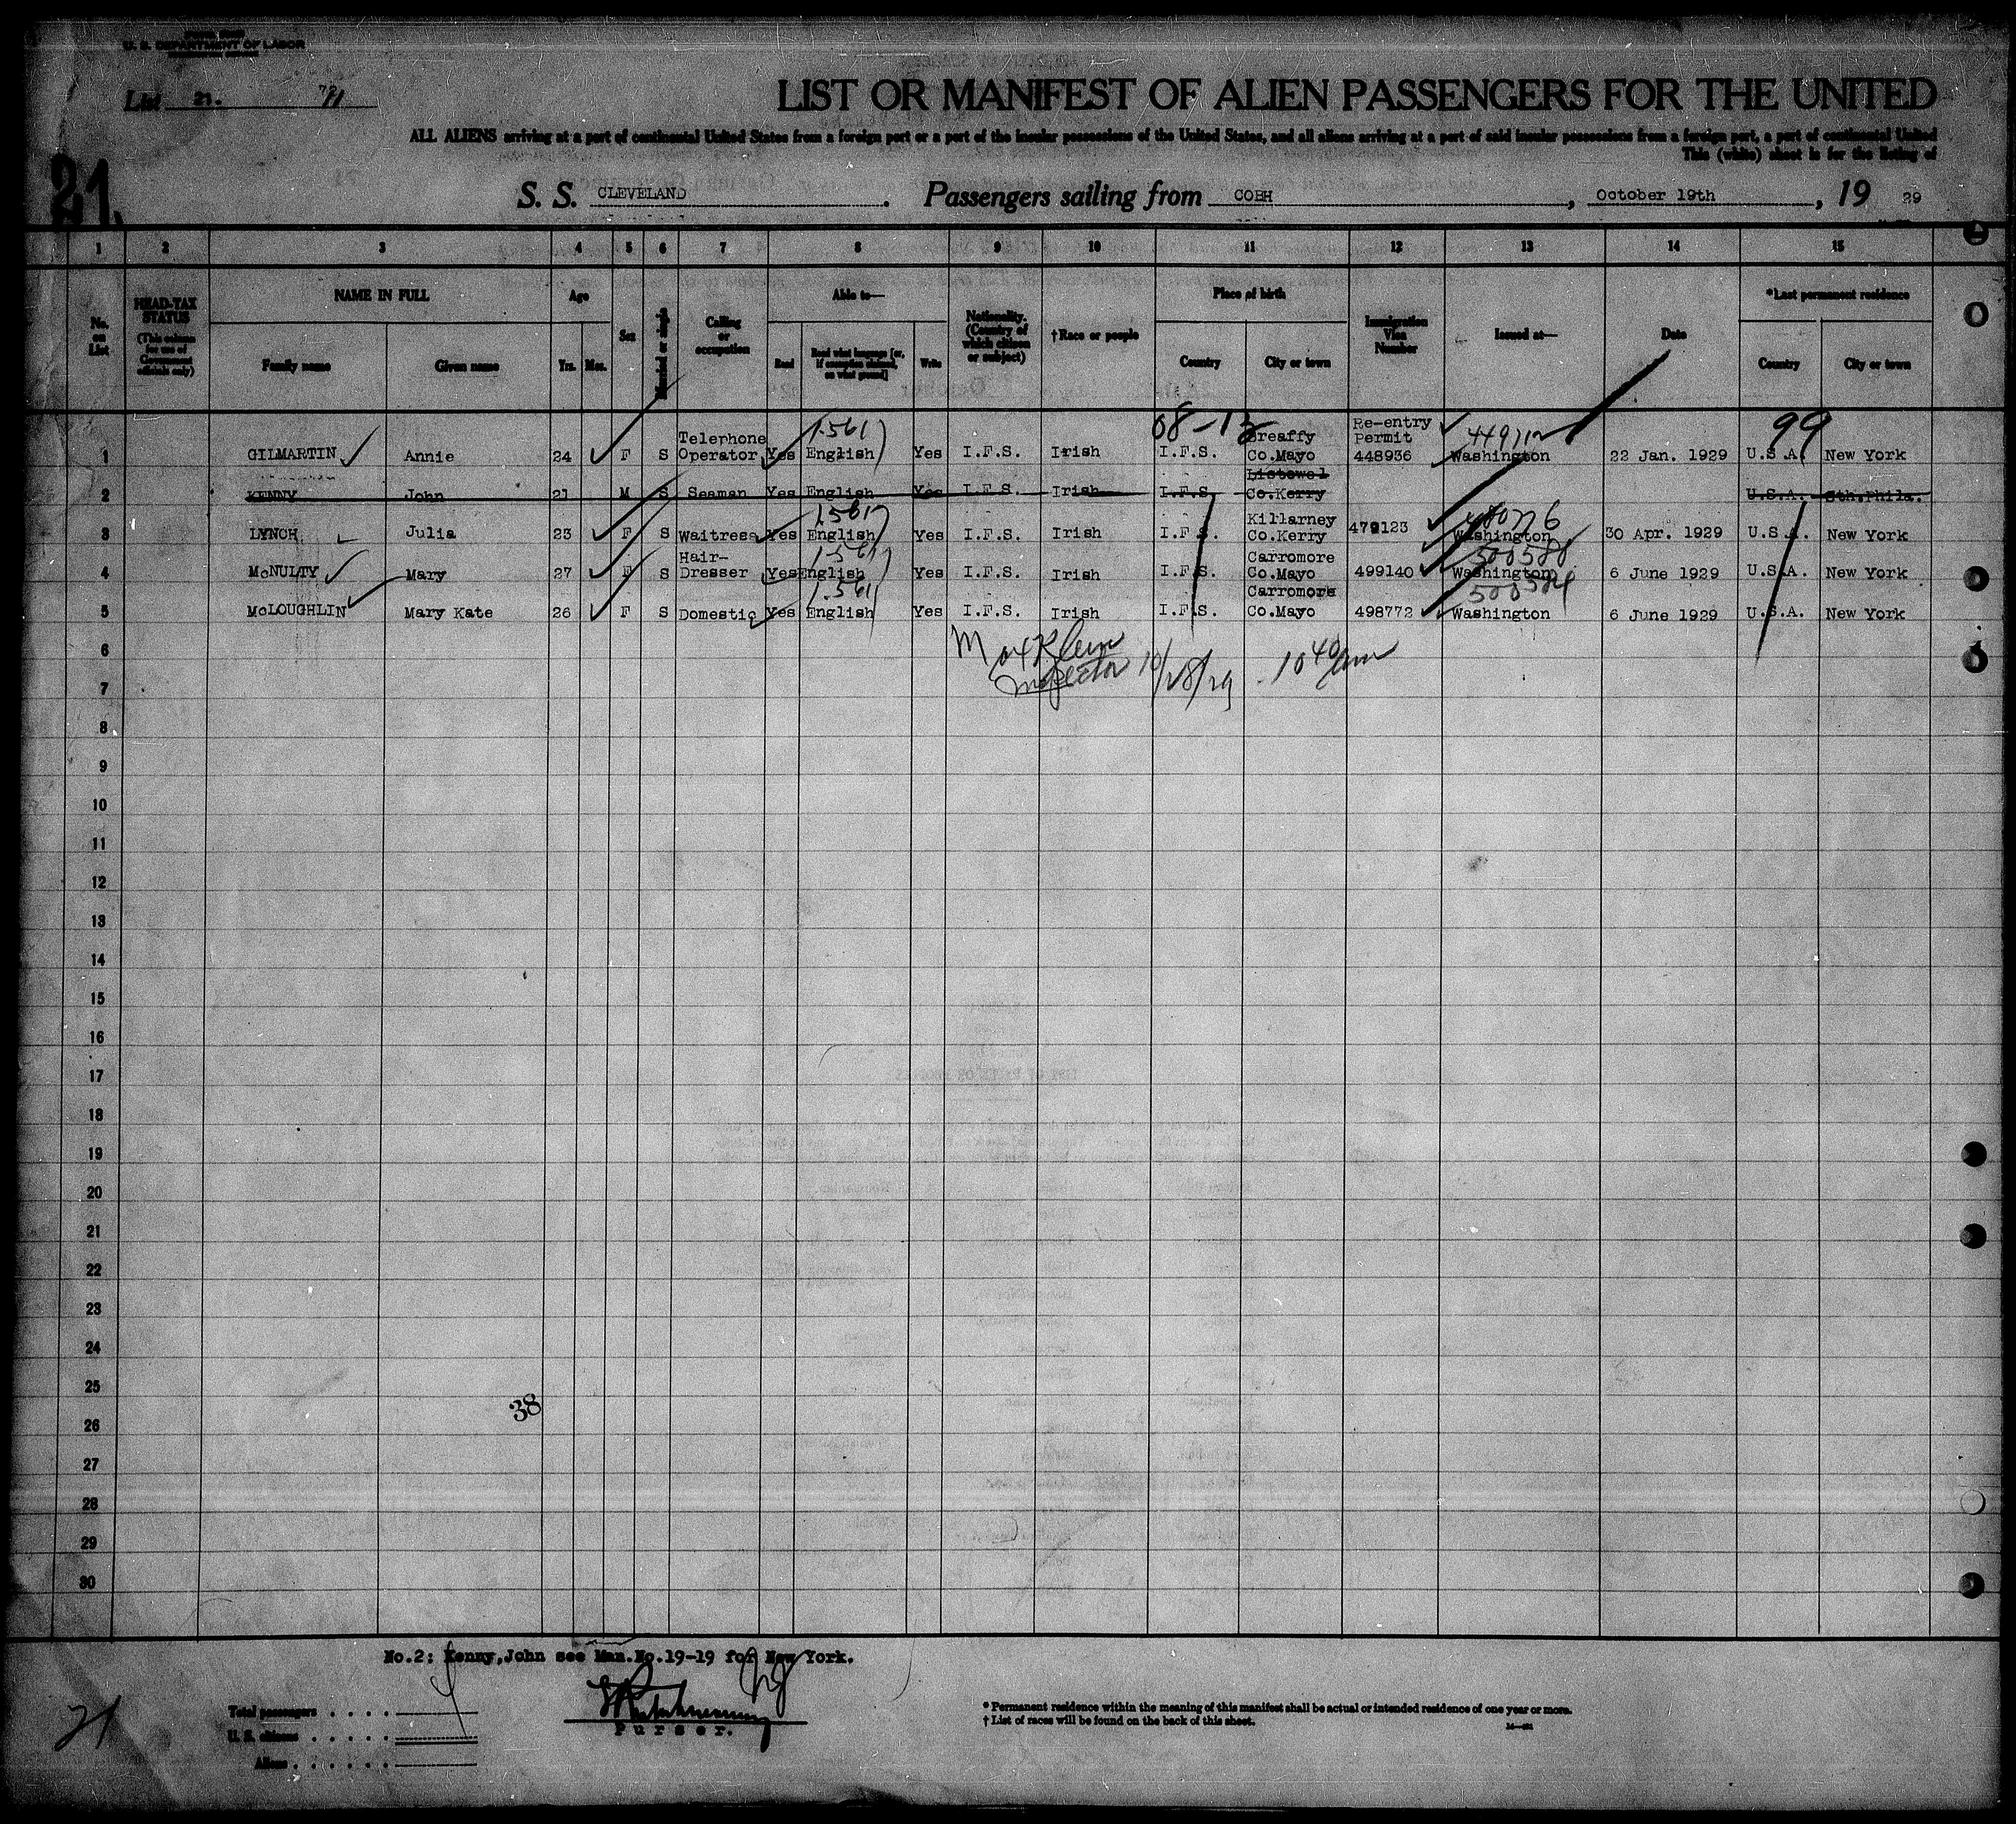 U. S. DEPARTMENT OF LABOR
List 21.
LIST OR MANIFEST OF ALIEN PASSENGERS FOR THE UNITED
ALL ALIENS arriving at a port of continental United States from a foreign port or a port of the insular possessions of the United States, and all aliens arriving at a port of said insular possessions from a foreign port, a port of continental United
This (white) sheet is for the listing of
21.
S. S. CLEVELAND. Passengers sailing from COBH, October 19th, 19 29
1 2 3 4 5 6 7 8 9 10 11 12 13 14 15
No. on List
HEAD-TAX STATUS (This column for use of Government officials only)
NAME IN FULL
Family name Given name
Age
Yrs. Mos.
Sex
Married or single
Calling or occupation
Able to—
Read Read what language [or, if exemption claimed, on what ground] Write
Nationality. (Country of which citizen or subject)
†Race or people
Place of birth
Country City or town
Immigration Visa Number
Issued at—
Date
*Last permanent residence
Country City or town
68-13 99
1 GILMARTIN Annie 24 F S Telephone Operator Yes English 1.561 Yes I.F.S. Irish I.F.S. Breaffy Co.Mayo Re-entry Permit 448936 Washington 22 Jan. 1929 U.S.A. New York
2 KENNY John 21 M S Seaman Yes English Yes I.F.S. Irish I.F.S. Listowel Co.Kerry U.S.A. Sth.Phila.
3 LYNCH Julia 23 F S Waitress Yes English 1.561 Yes I.F.S. Irish I.F.S. Killarney Co.Kerry 479123 480776 Washington 30 Apr. 1929 U.S.A. New York
4 McNULTY Mary 27 F S Hair-Dresser Yes English 1.561 Yes I.F.S. Irish I.F.S. Carromore Co.Mayo 499140 500580 Washington 6 June 1929 U.S.A. New York
5 McLOUGHLIN Mary Kate 26 F S Domestic Yes English 1.561 Yes I.F.S. Irish I.F.S. Carromore Co.Mayo 498772 500584 Washington 6 June 1929 U.S.A. New York
6
Max Klein
Inspector 10/28/29 10 40 am
7
8
9
10
11
12
13
14
15
16
17
18
19
20
21
22
23
24
25
38
26
27
28
29
30
No.2: Kenny,John see Man.No.19-19 for New York.
21
Total passengers
U. S. citizens
Aliens
Purser.
* Permanent residence within the meaning of this manifest shall be actual or intended residence of one year or more.
† List of races will be found on the back of this sheet.